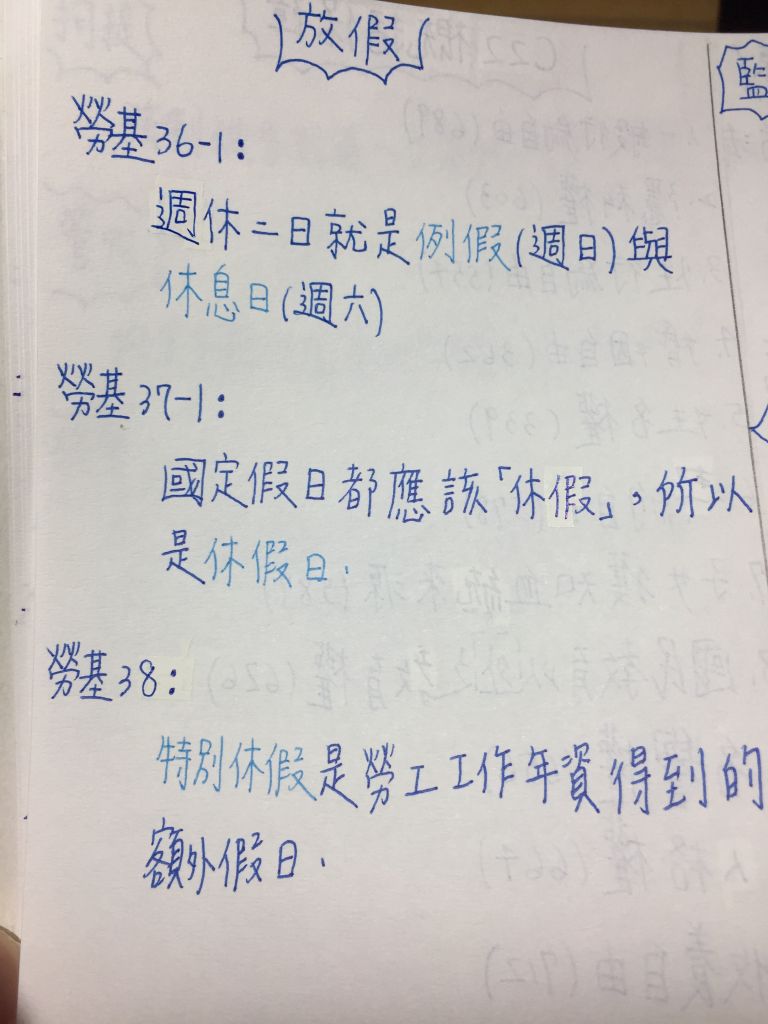 放假
監
勞基36-1:
週休二日就是例假(週日)與
休息日(週六)
勞基37-1:
國定假日都應該「休假」,所以
是休假日.
勞基38:
特別休假是勞工工作年資得到的
額外假日.